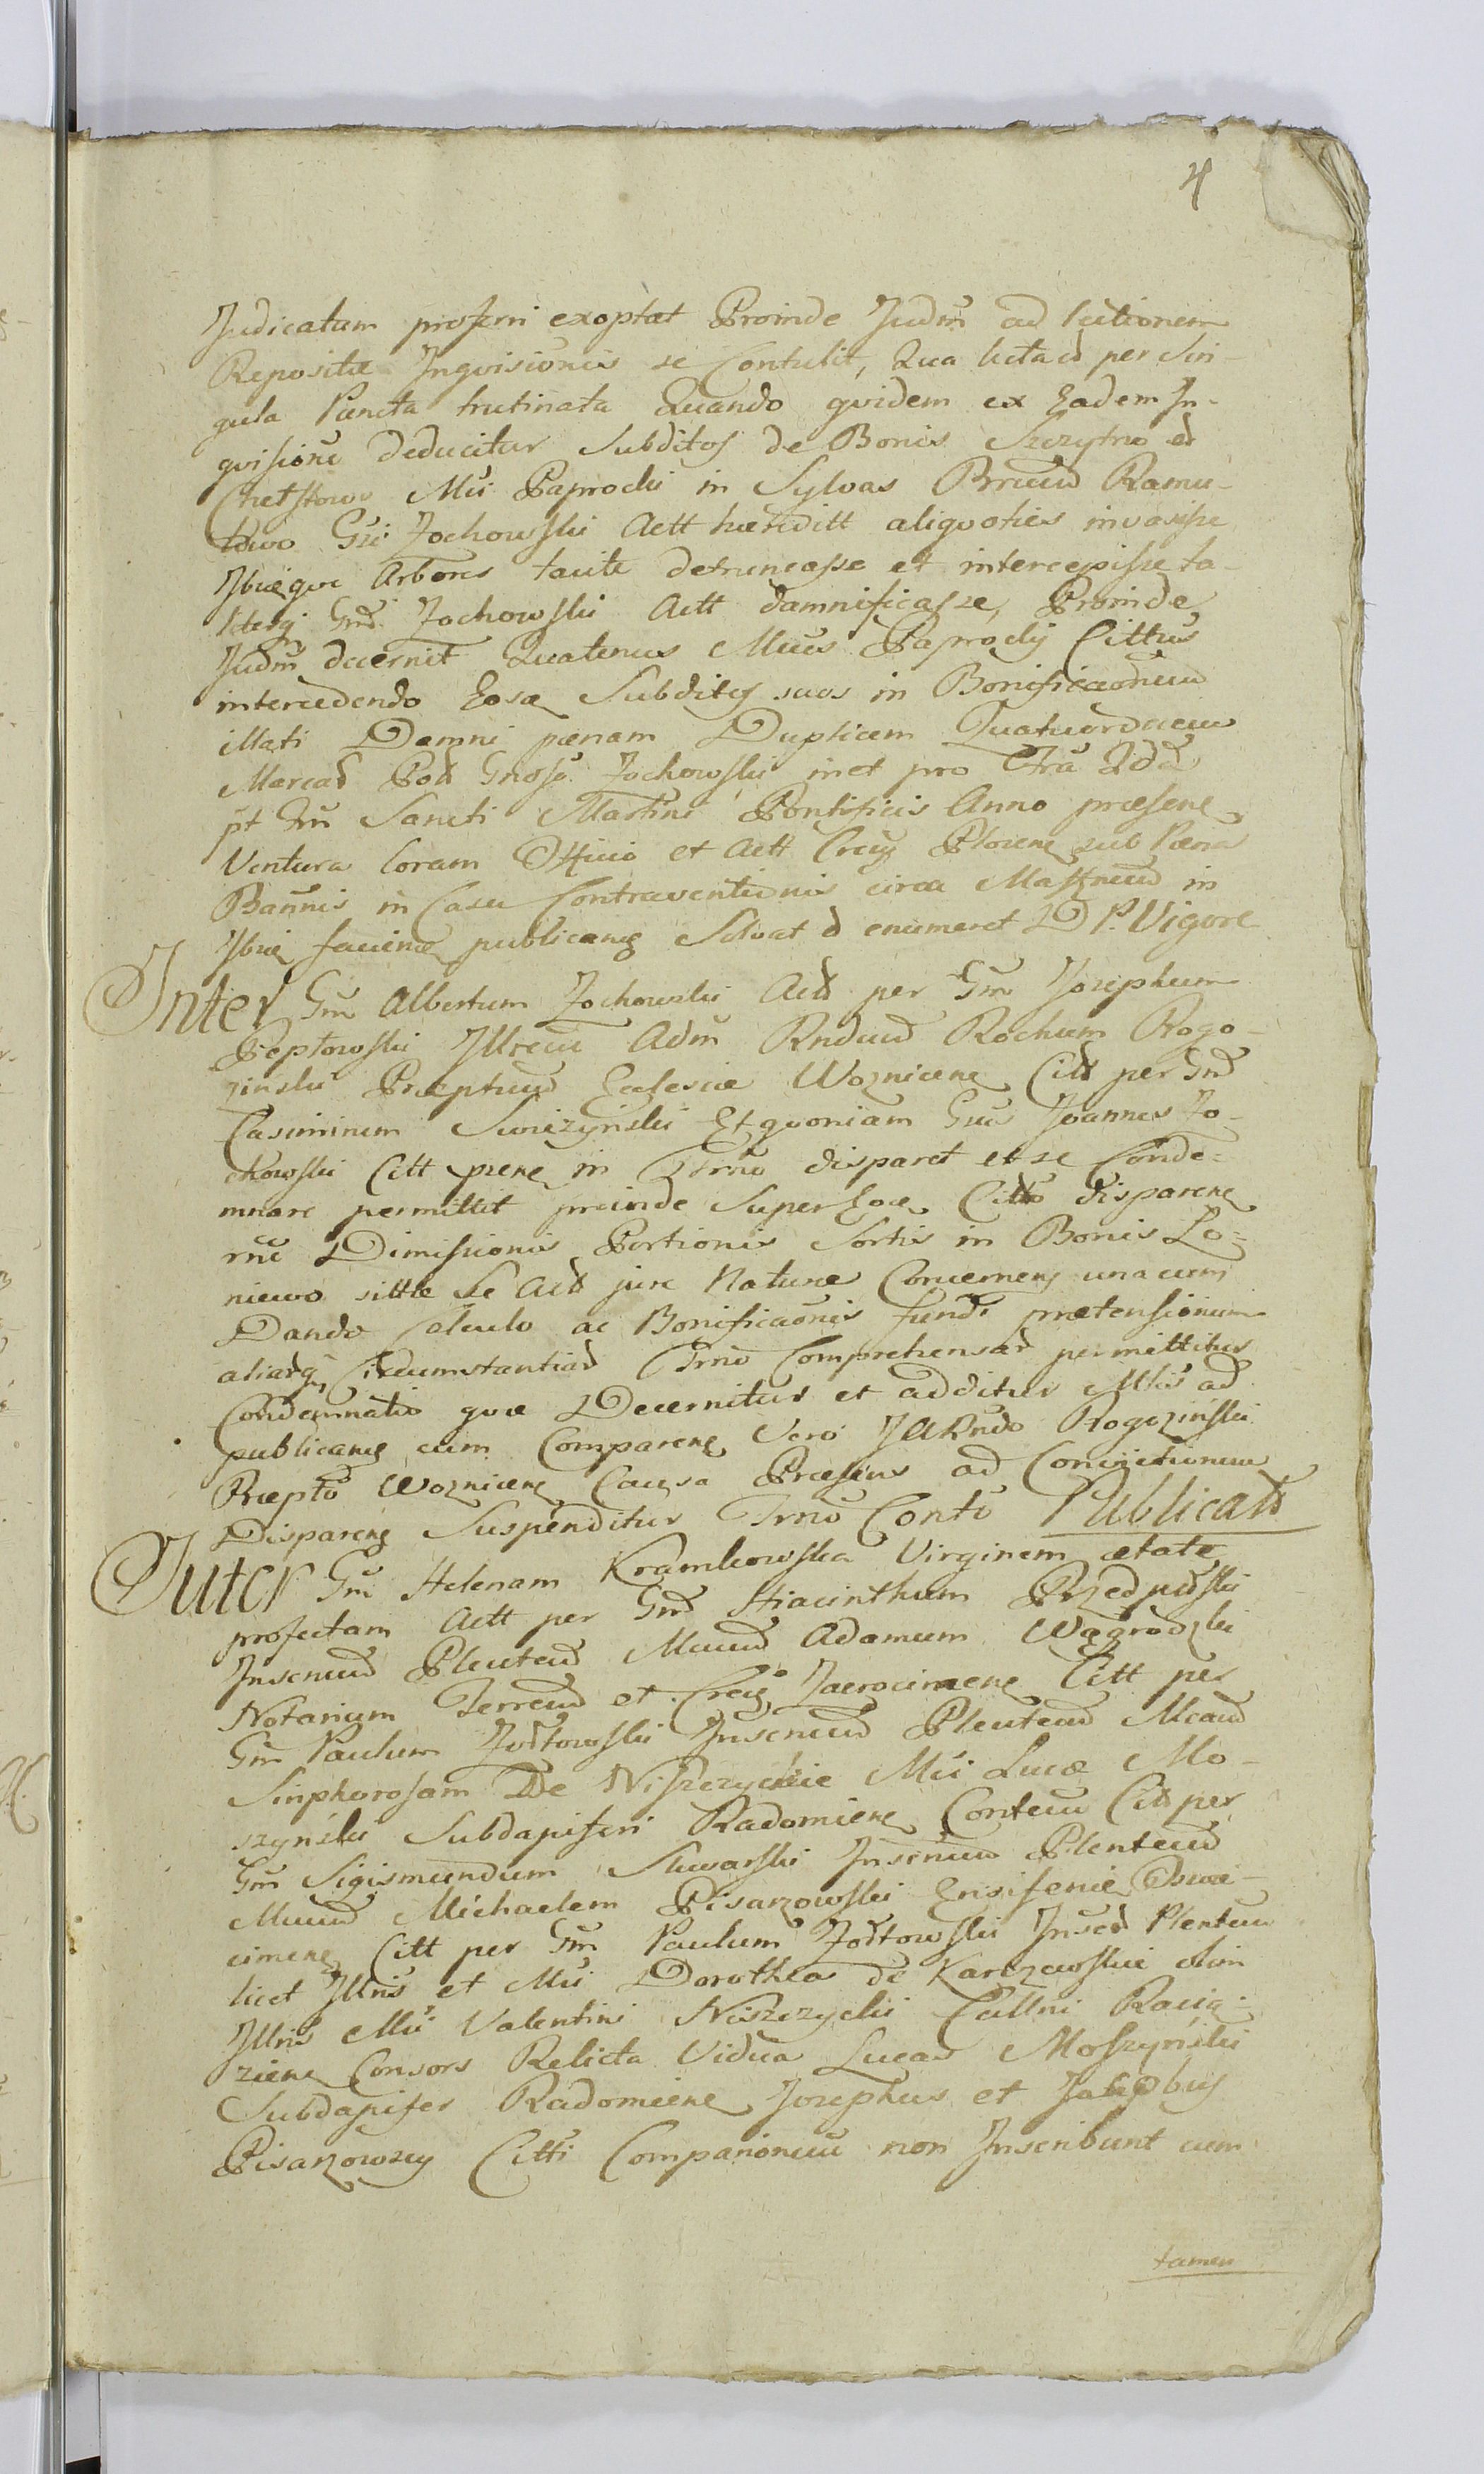 4
Judicatum proferri exoptat Proinde Judm̃ ad lectionem
Repositæ Inqvisionis se Contulit, Qua lecta et per Sin-
gula Puncta trutinata Quando qvidem ex Eadem In-
qvisione deducitur Subditos de Bonis Szczytno et
Mũi Paprocki in Sylvas Ramu-
towo Gsi Zochowski Actt hæreditt aliqvoties invasisse
Ibiqve Arbores tacite detruncasse et intercepisse ta-
literq Gnd Zochowski Actt damnificasse, Proinde
Judm̃ decernit Quatenus Mũus Paprocky Cittus
intercedendo Subditos suos in Bonificaõnem
illati Damni pænam Duplicem Quatuordecem
Marcas Poll Gnoso Zochowski inet pro
pt Sancti Martini Pontificis Anno præsene
Ventura Coram Officio et Actt Plocene sub Pæna
Bannis in Casu Contraventionis circa in
faciene publicane Solvat et enumeret D P. Vigore
Inter Gm̃ Albertum Zochowski Actt per Gm̃ Josephum
Peptowski Illrem Adm̃ Rndum Rochum Rogo-
zinski Præptum Ecclesiæ Woznicene Citt per Gnd
Casimirum Swiezynski Et qvoniam Gsus Joannes Zo-
chowski Citt in Trno disparet et se Conde-
mnare permittet proinde Super Citto disparene
rne Dimissionis Portionis Sortis in Bonis Lo-
niewo sittle Se Actt jure Naturæ Concernens una cum
Dando Calculo ac Bonificaõnis fundi prætensionum
aliarq Circumstantiar Trno Comprehensar permittitur
Condemnatio qvæ Decernitur et additur Mlis ad
publicane cum Comparene Vero Rndo Rogozinski
Præpto Woznicene Causa Præsens ad
Disparene Suspenditur Trno Contõ Publicatt
Inter Gm̃ Helenam Kramkowska Virginem ætate
profectam Actt per Gnd Hiacinthum
Insenud Plentend Mũum Adamum Wągrodzki
Notarium Terrem et Citt per
Gm̃ Paulum Zołtowski Insenud Plentend Mcam
Sinphorosam De Niszczyckie Mũi Lucæ Mo-
szynski Subdapiferi Radomiene Contem Citt per
Gm̃ Sigismundum Insenud Plentend
Mũum Michaelem Pisarzowski Ensiferie Oswie-
cimene Citt per Gm̃ Paulum Zołtowski Plentem
licet Illris et Mũi Dorothea de Karczewskie olim
Illris Mũi Valentini Niszczycki Cattni Racią-
ziene Consors Relicta Vidua Lucas Moszynski
Subdapifer Radomiene Josephus et Jacobus
Pisarzowscy Citti Comparionem non Inscribunt cum
tamen